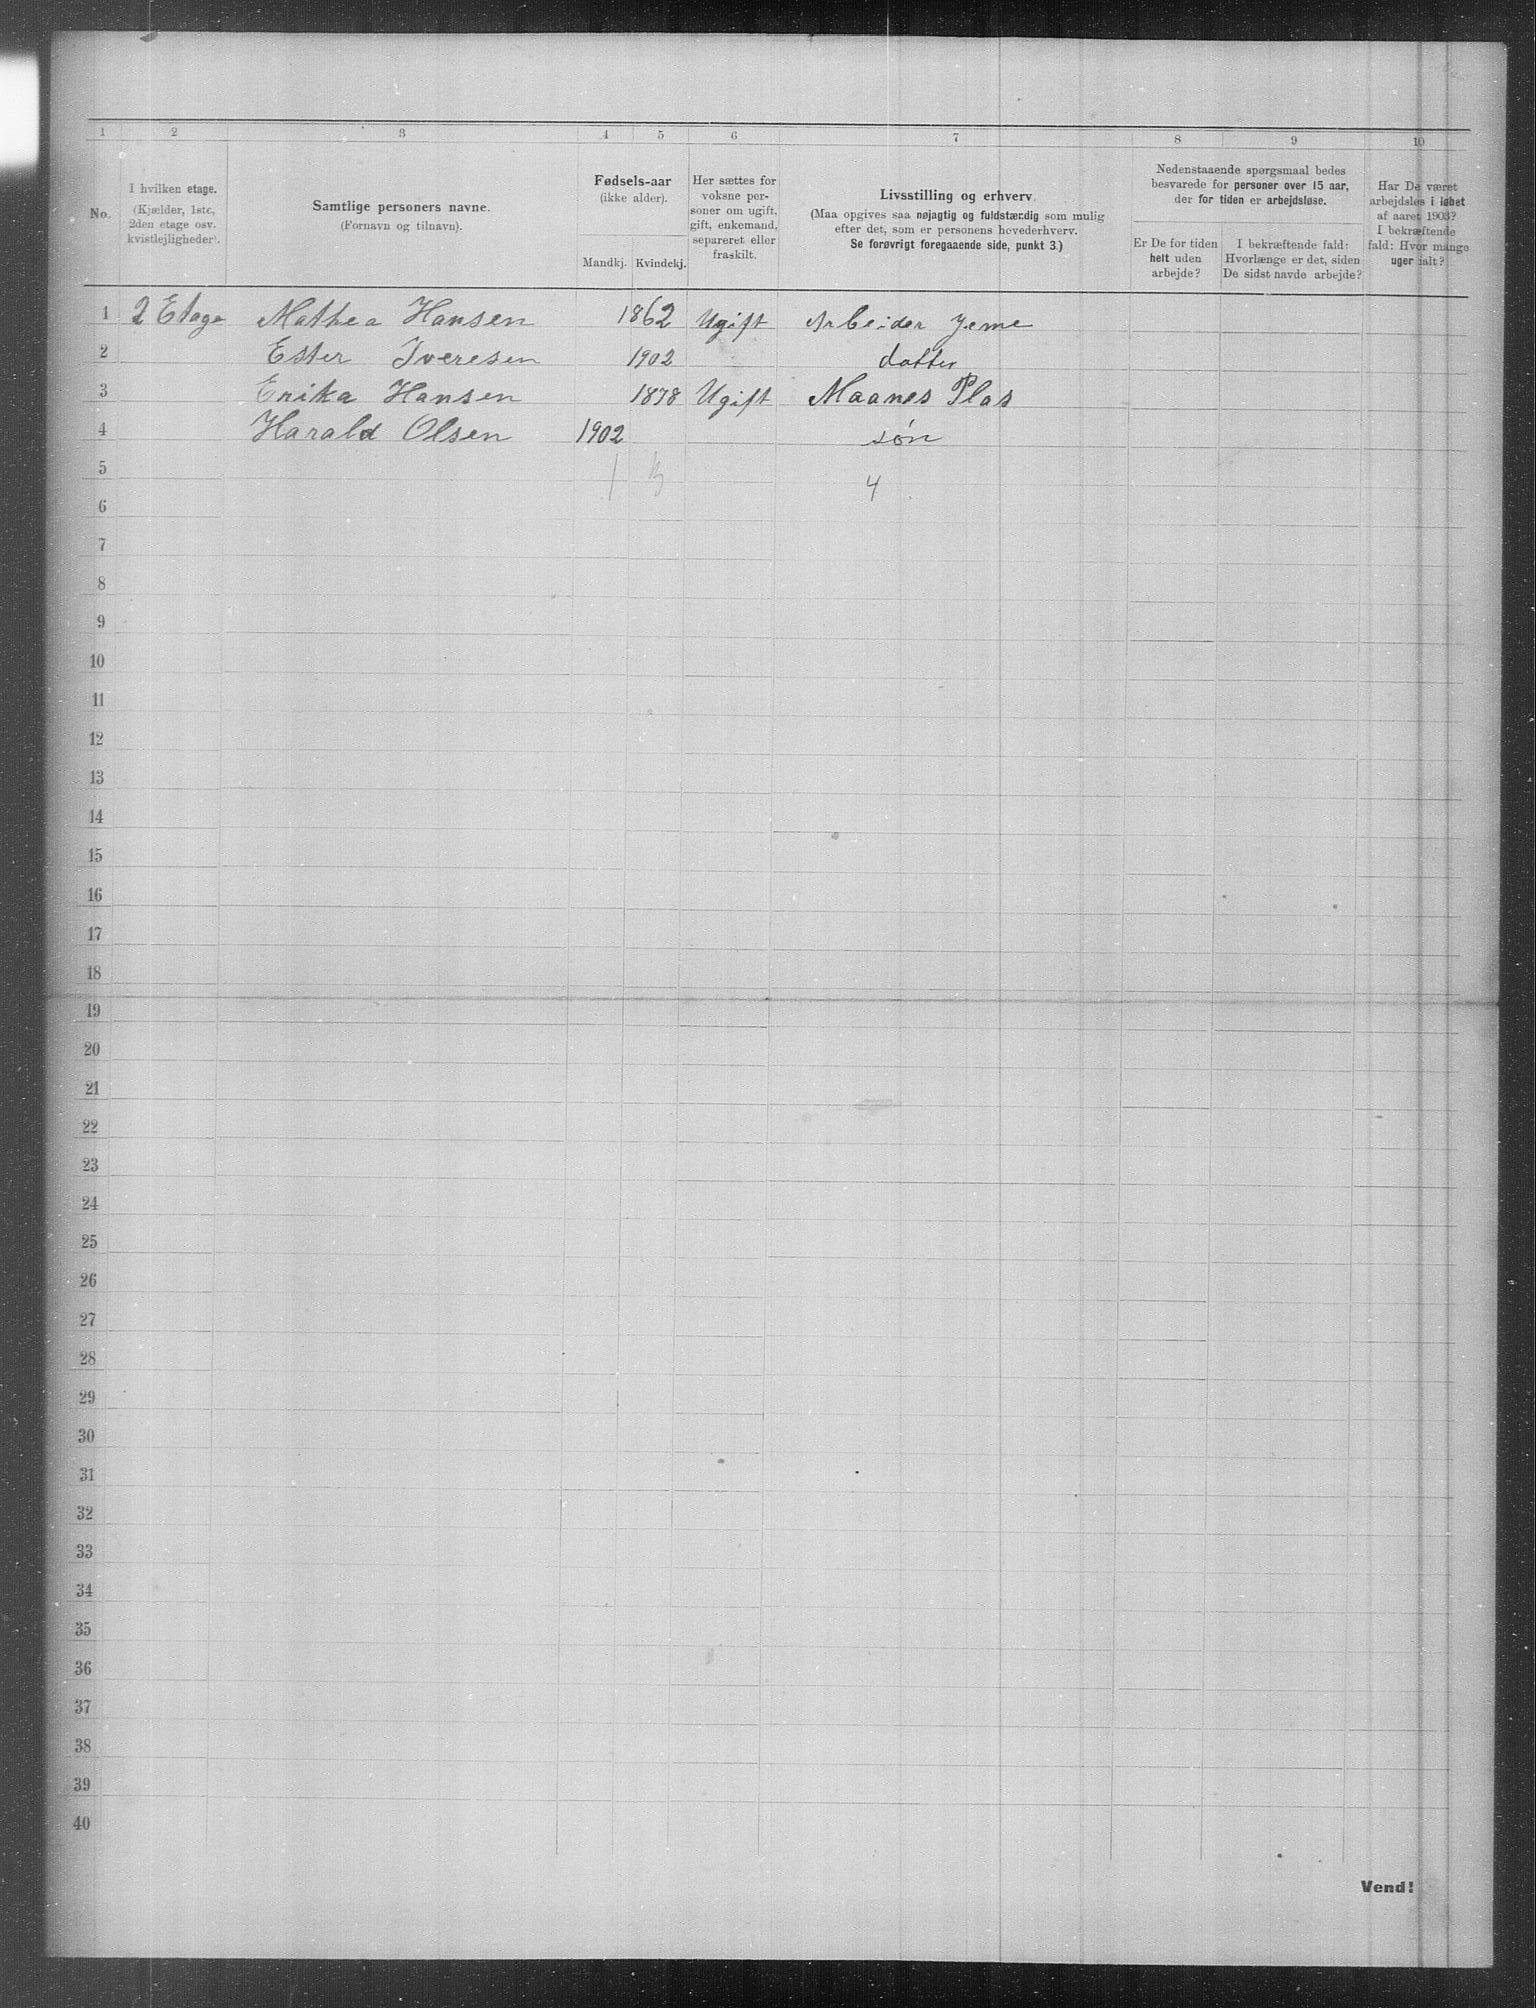 1 2 3 4 5 6 7 8 9 10
No.
I hvilken etage.
(Kjælder, 1ste,
2den etage osv.
kvistlejligheder).
Samtlige personers navne.
(Fornavn og tilnavn).
Fødsels-aar
(ikke alder).
Mandkj. Kvindekj.
Her sættes for
voksne per-
soner om ugift,
gift, enkemand,
separeret eller
fraskilt.
Livsstilling og erhverv.
(Maa opgives saa nøjagtig og fuldstændig som mulig
efter det, som er personens hovederhverv.
Se forøvrigt foregaaende side, punkt 3.)
Nedenstaaende spørgsmaal bedes
besvarede for personer over 15 aar,
der for tiden er arbejdsløse.
Er De for tiden
helt uden
arbejde?
I bekræftende fald:
Hvorlænge er det, siden
De sidst havde arbejde?
Har De været
arbejdsløs i løbet
af aaret 1903?
I bekræftende
fald: Hvor mange
uger ialt?
1 2 Etage Mathea Hansen 1862 Ugift Arbeider Jeme
2 Ester Iveresen 1902 datter
3 Erika Hansen 1878 Ugift Maanes Plas
4 Harald Olsen 1902 søn
5 1 3 4
6
7
8
9
10
11
12
13
14
15
16
17
18
19
20
21
22
23
24
25
26
27
28
29
30
31
32
33
34
35
36
37
38
39
40
Vend!